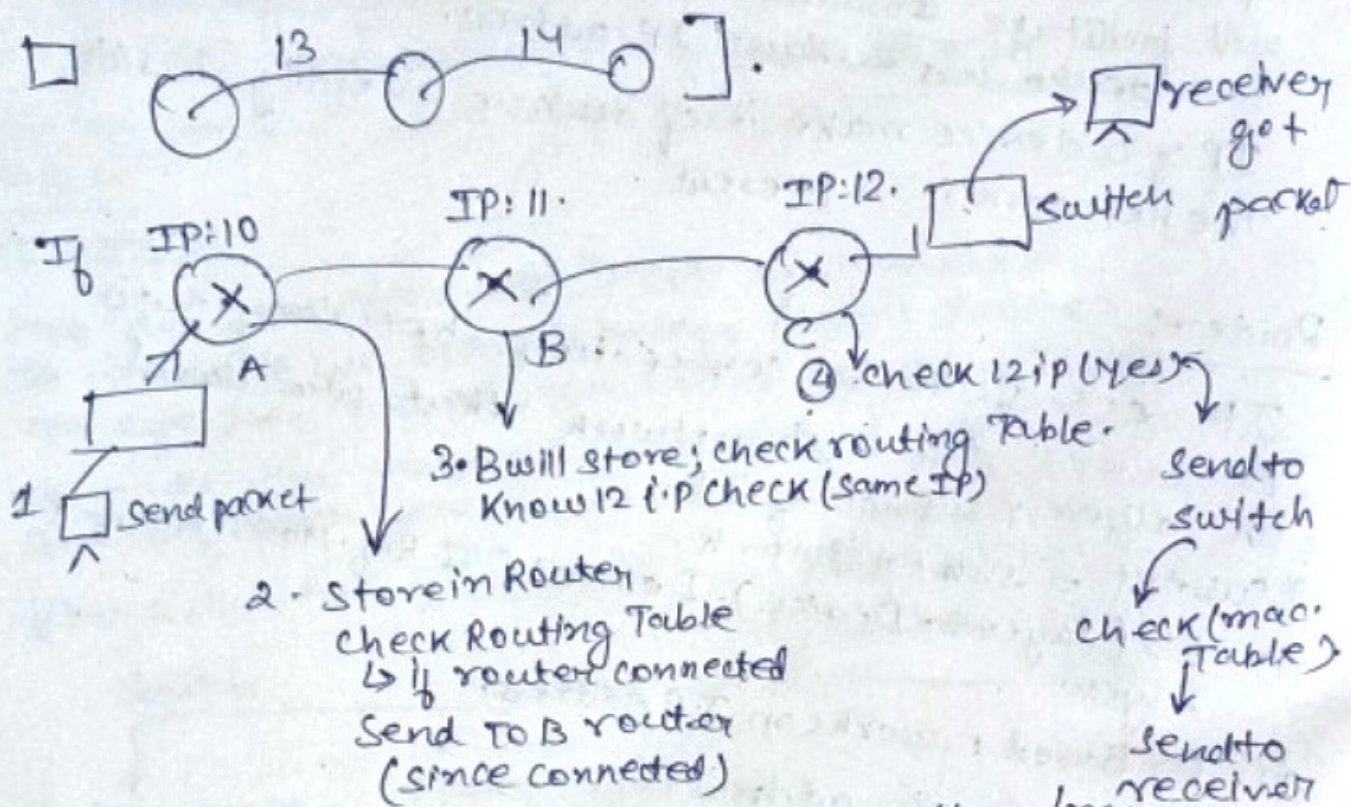 13
14
].
receiver
got
packet
IP:10
IP: 11.
IP:12.
switch
If
A
B
C
④ check 12 ip (yes)
1
send packet
3. B will store; check routing Table.
Know 12 i.p check (same IP)
2. Store in Router
check Routing Table
↳ if router connected
Send TO B router
(since connected)
Send to
switch
check (mac.
Table)
send to
receiver